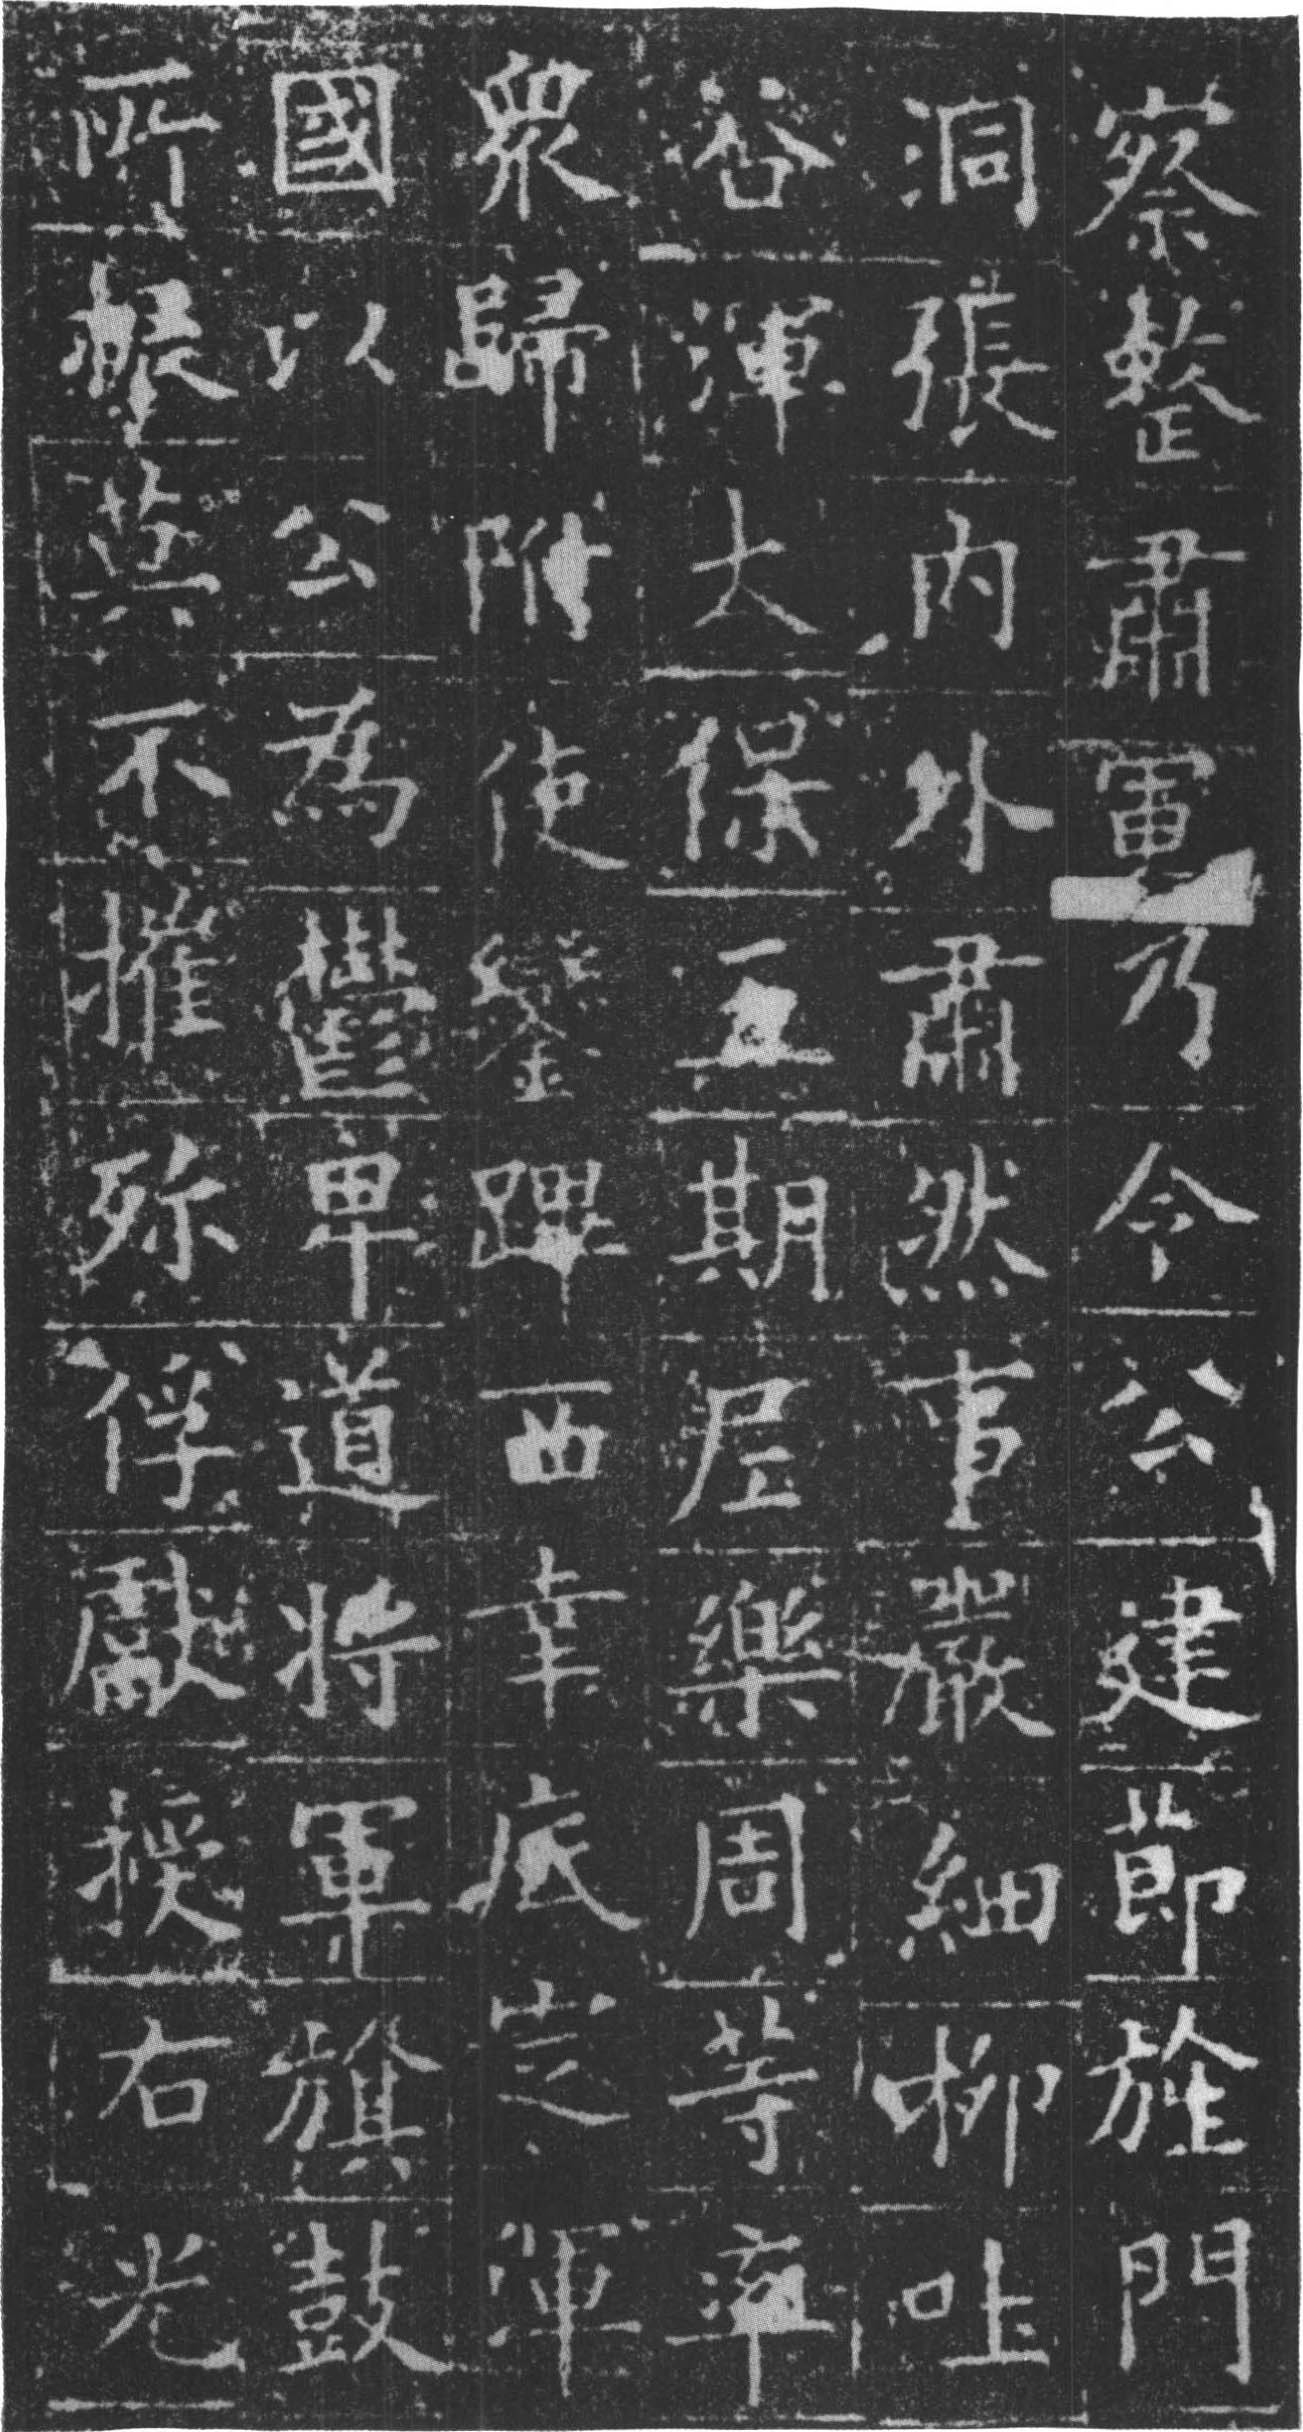 察整肅軍乃令公建節旌門
洞張內外肅然事嚴細柳吐
谷渾大保五期尼樂周等率
眾歸附使鑾蹕西幸底定渾
國以公為欝卑道將軍旗鼓
所振莫不摧殄俘獻授右光